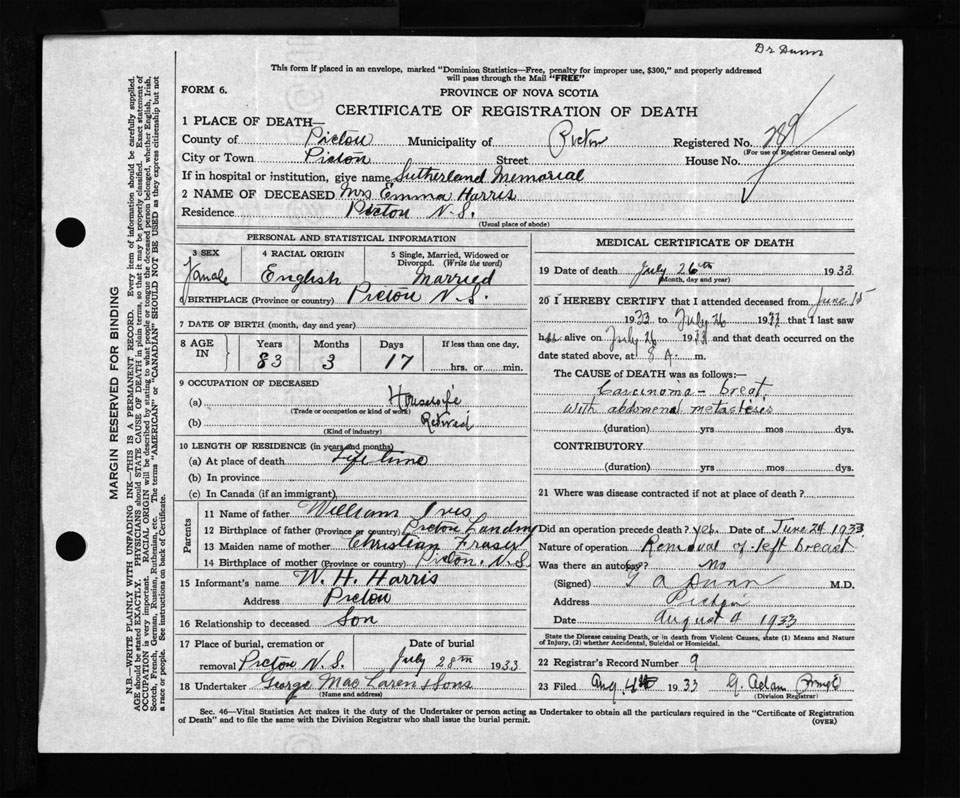 Dr Dunn
This form if placed in an envelope, marked "Dominion Statistics—Free, penalty for improper use, $300," and properly addressed
will pass through the Mail "FREE"
FORM 6.
PROVINCE OF NOVA SCOTIA
CERTIFICATE OF REGISTRATION OF DEATH
1 PLACE OF DEATH—
County of Pictou Municipality of Pictou Registered No. 289
(For use of Registrar General only)
City or Town Pictou Street House No.
If in hospital or institution, give name Sutherland Memorial
2 NAME OF DECEASED Mrs Emma Harris
Residence Pictou N.S.
(Usual place of abode)
MARGIN RESERVED FOR BINDING
N.B.—WRITE PLAINLY WITH UNFADING INK—THIS IS A PERMANENT RECORD. Every item of information should be carefully supplied.
AGE should be stated EXACTLY. PHYSICIANS should STATE CAUSE OF DEATH in plain terms, so that it may be properly classified. Exact statement of
OCCUPATION is very important. RACIAL ORIGIN will be described by stating to what people or tongue the deceased person belonged, whether English, Irish,
Scotch, French, German, Russian, Ruthenian, etc. The terms "AMERICAN" or "CANADIAN" SHOULD NOT BE USED as they express citizenship but not
a race or people. See instructions on back of Certificate.
PERSONAL AND STATISTICAL INFORMATION
3 SEX 4 RACIAL ORIGIN 5 Single, Married, Widowed or
Divorced. (Write the word)
Female English Married
6 BIRTHPLACE (Province or country) Pictou N.S.
7 DATE OF BIRTH (month, day and year)
8 AGE IN Years Months Days If less than one day,
83 3 17 hrs. or min.
9 OCCUPATION OF DECEASED
(a) Housewife
(Trade or occupation or kind of work)
(b) Retired
(Kind of industry)
10 LENGTH OF RESIDENCE (in years and months)
(a) At place of death Life time
(b) In province
(c) In Canada (if an immigrant)
Parents
11 Name of father William Ives
12 Birthplace of father (Province or country) Pictou Landing
13 Maiden name of mother Christian Fraser
14 Birthplace of mother (Province or country) Pictou. N.S.
15 Informant's name W. H. Harris
Address Pictou
16 Relationship to deceased Son
17 Place of burial, cremation or Date of burial
removal Pictou N.S. July 28th 1933
18 Undertaker George MacLaren & Sons
(Name and address)
MEDICAL CERTIFICATE OF DEATH
19 Date of death July 26th 1933
(Month, day and year)
20 I HEREBY CERTIFY that I attended deceased from June 15
1933 to July 26 1933 that I last saw
her alive on July 26 1933 and that death occurred on the
date stated above, at 8 A. m.
The CAUSE OF DEATH was as follows:—
Carcinoma - breat
with abdomenal metasteses
(duration) yrs mos dys.
CONTRIBUTORY
(duration) yrs mos dys.
21 Where was disease contracted if not at place of death?
Did an operation precede death? yes. Date of June 24 1933
Nature of operation Removal of left breast
Was there an autopsy? No
(Signed) G A Dunn M.D.
Address Pictou
Date August 4 1933
State the Disease causing Death, or in death from Violent Causes, state (1) Means and Nature
of Injury, (2) whether Accidental, Suicidal or Homicidal.
22 Registrar's Record Number 9
23 Filed Aug. 4th 1933 G. Adam
(Division Registrar)
Sec. 46—Vital Statistics Act makes it the duty of the Undertaker or person acting as Undertaker to obtain all the particulars required in the "Certificate of Registration
of Death" and to file the same with the Division Registrar who shall issue the burial permit.
(OVER)